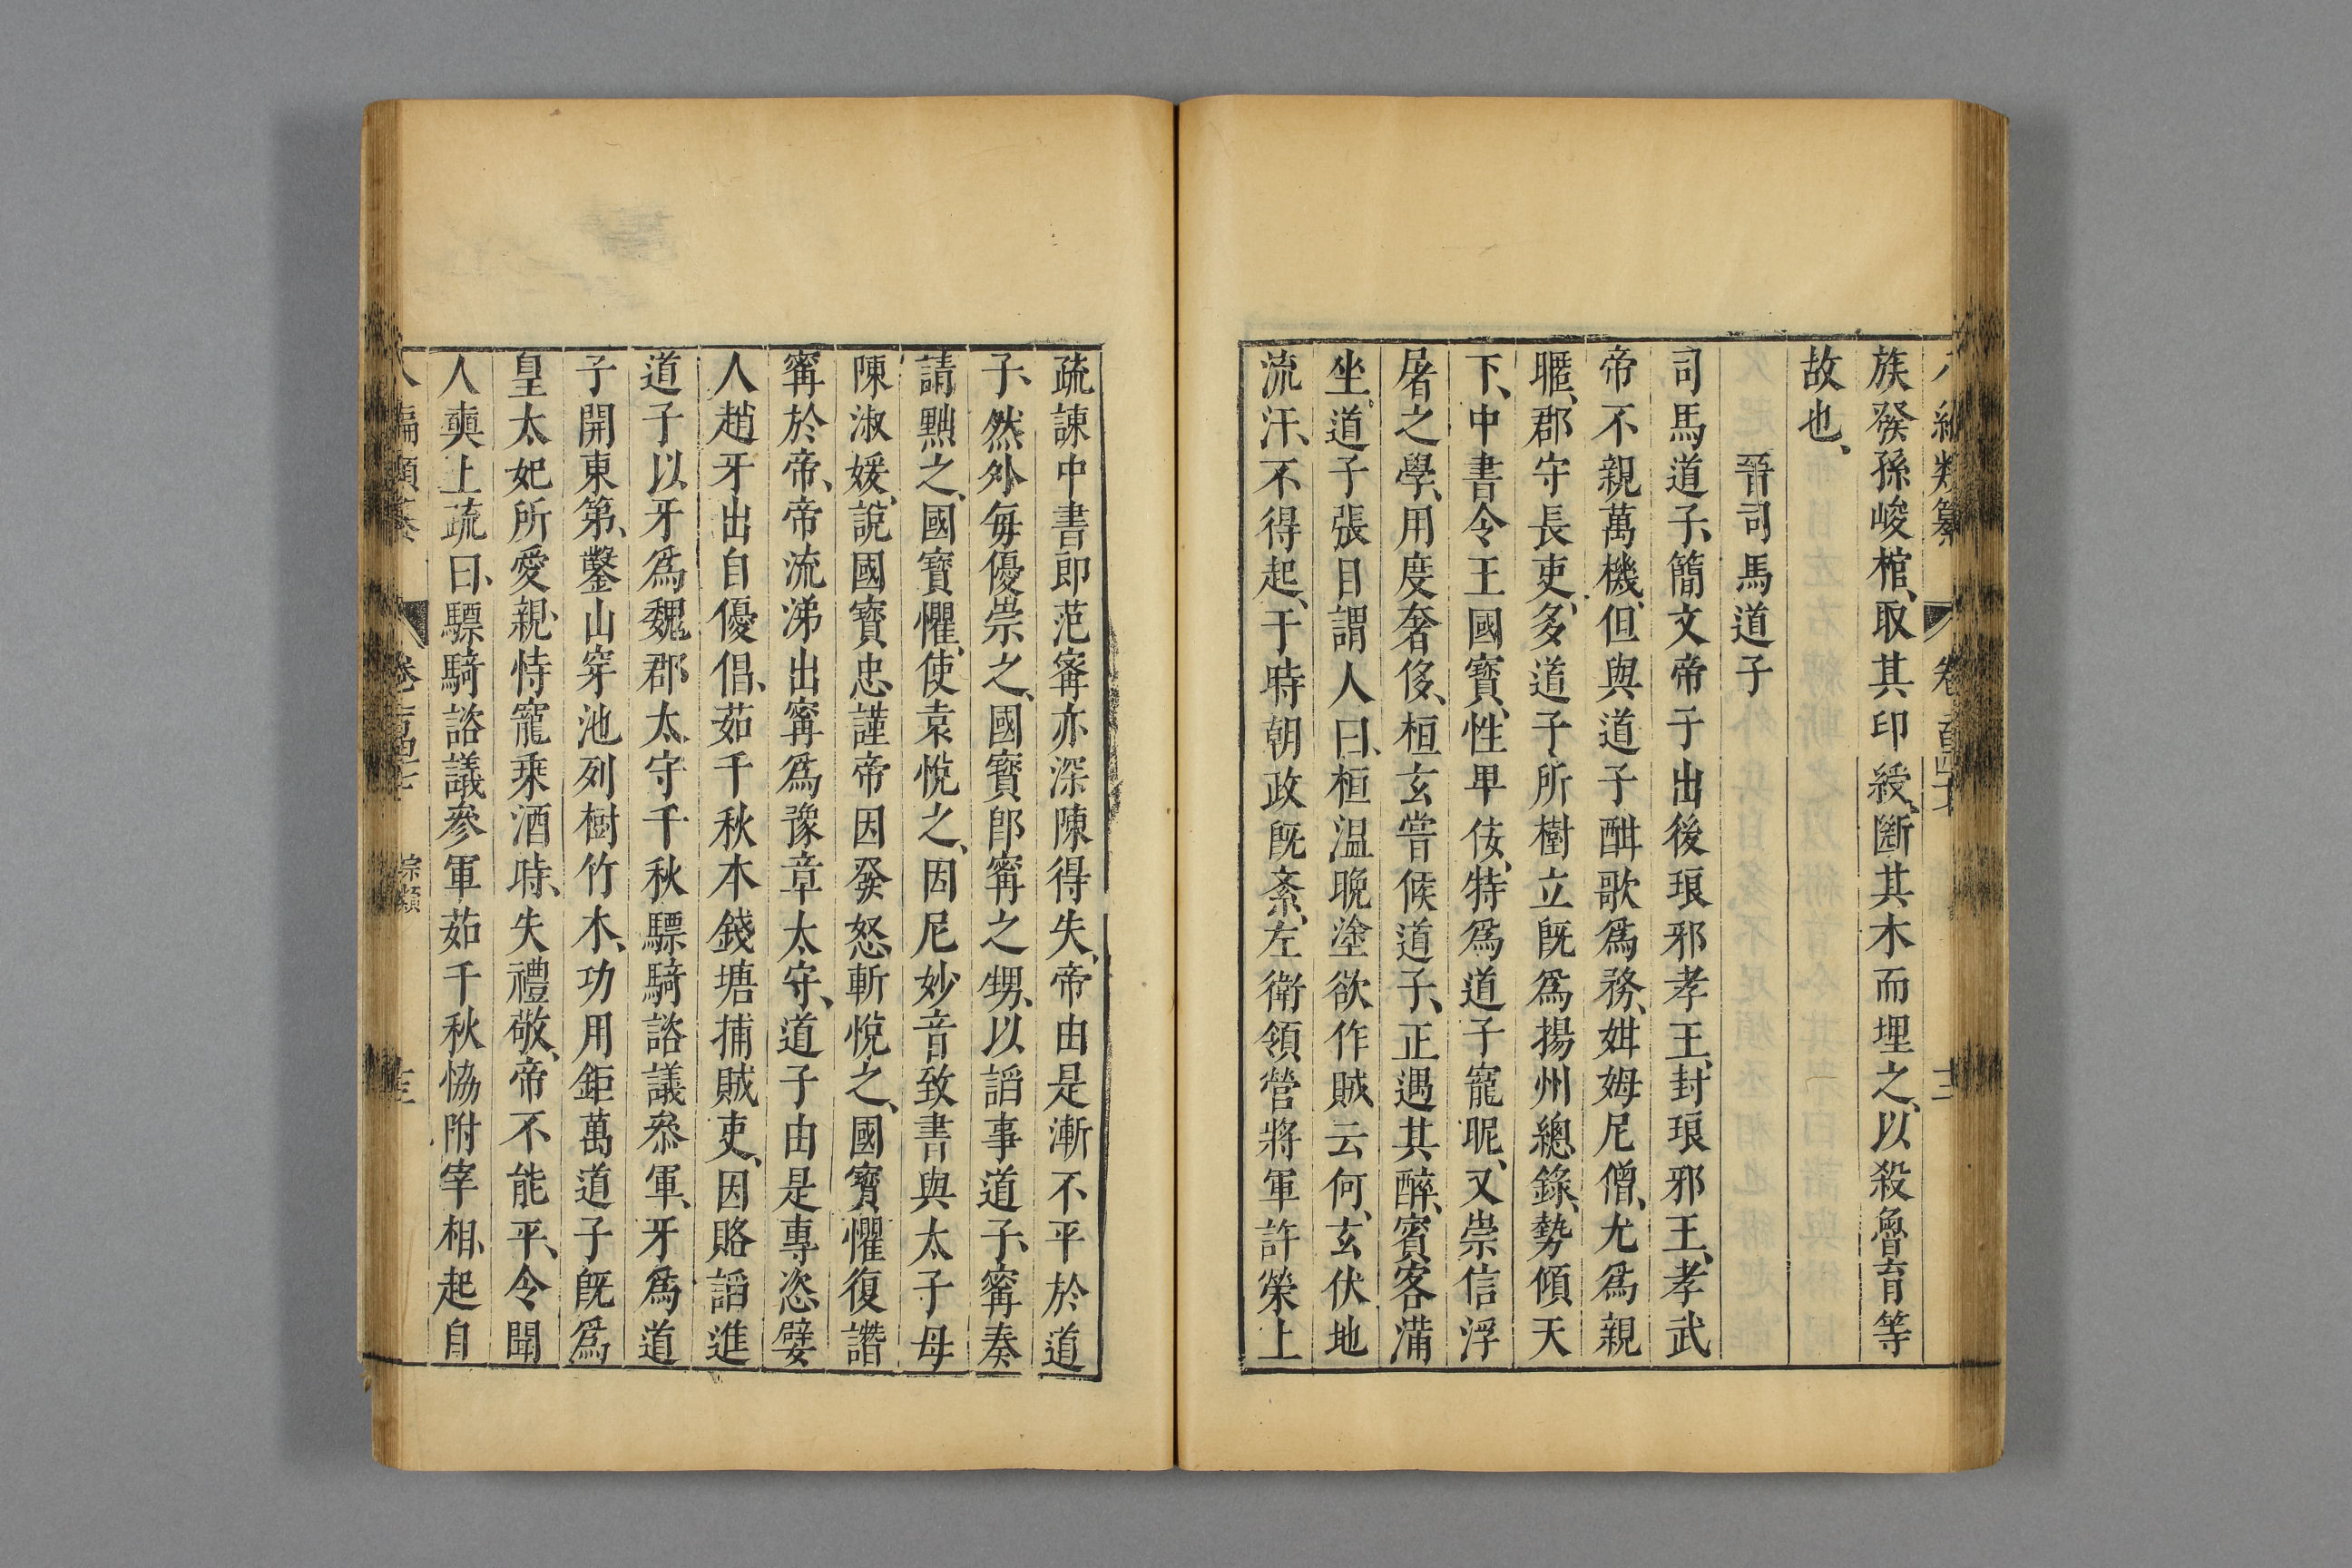 族發孫峻棺、取其印綬、斷其木而埋之、以殺魯育等
故也、
晉司馬道子
司馬道子、簡文帝子出後琅邪孝王、封琅邪王、孝武
帝不親萬機、但與道子酣歌爲務、姏姆尼僧、尤爲親
暱、郡守長吏、多道子所樹立既爲揚州總錄、勢傾天
下、中書令王國寶、性卑佞、特爲道子寵昵、又崇信浮
屠之學、用度奢侈、桓玄嘗候道子、正遇其醉、賓客滿
坐、道子張目謂人曰、桓溫晚塗欲作賊云何、玄伏地
流汗、不得起、于時朝政既紊、左衛領營將軍許榮上
疏諫中書郎范甯亦深陳得失、帝由是漸不平於道
子、然外每優崇之、國寶郎甯之甥、以謟事道子、甯奏
請黜之、國寶懼、使袁悅之、因尼妙音致書與太子母
陳淑媛、說國寶忠謹帝因發怒、斬悅之、國寶懼復譖
甯於帝、帝流涕出甯爲豫章太守、道子由是專恣嬖
人趙牙出自優倡、茹千秋本錢塘捕賊吏、因賂謟進
道子以牙爲魏郡太守千秋驃騎諮議叅軍、牙爲道
子開東第、鑿山穿池列樹竹木、功用鉅萬道子既爲
皇太妃所愛親、恃寵乗酒時、失禮敬、帝不能平、令聞
人奭上疏曰、驃騎諮議參軍茹千秋恊附宰相、起自
編類纂 卷一百四十七 宗類